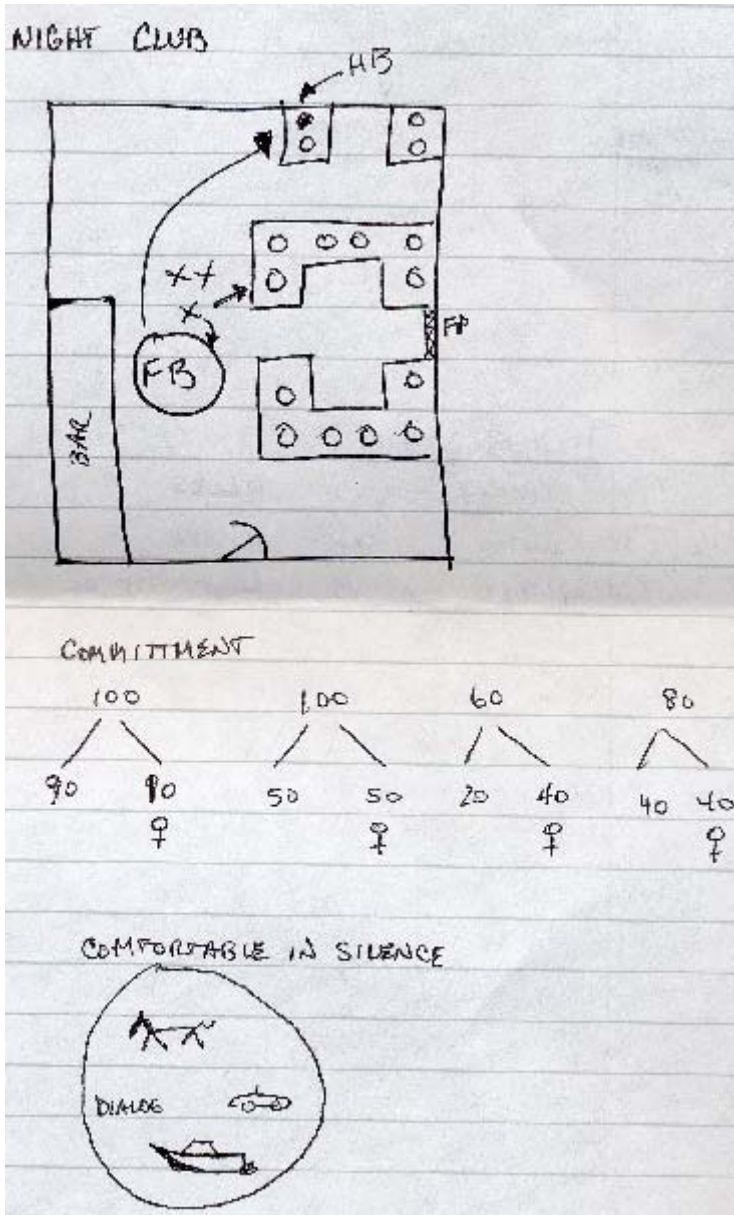 NIGHT CLUB
HB
X X
X
FP
FB
BAR
COMMITTMENT
100 100 60 80
90 10 50 50 20 40 40 40
♀ ♀ ♀ ♀
COMFORTABLE IN SILENCE
DIALOG